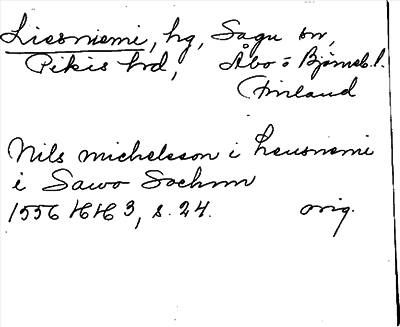 Liesniemi, hg, Sagu sn,
Pikis hrd, Åbo o Björneb. l.
Finland
Nils michelsson i heusniemi
i Sawo Sochnn
1556 HH 3, s. 24. orig.